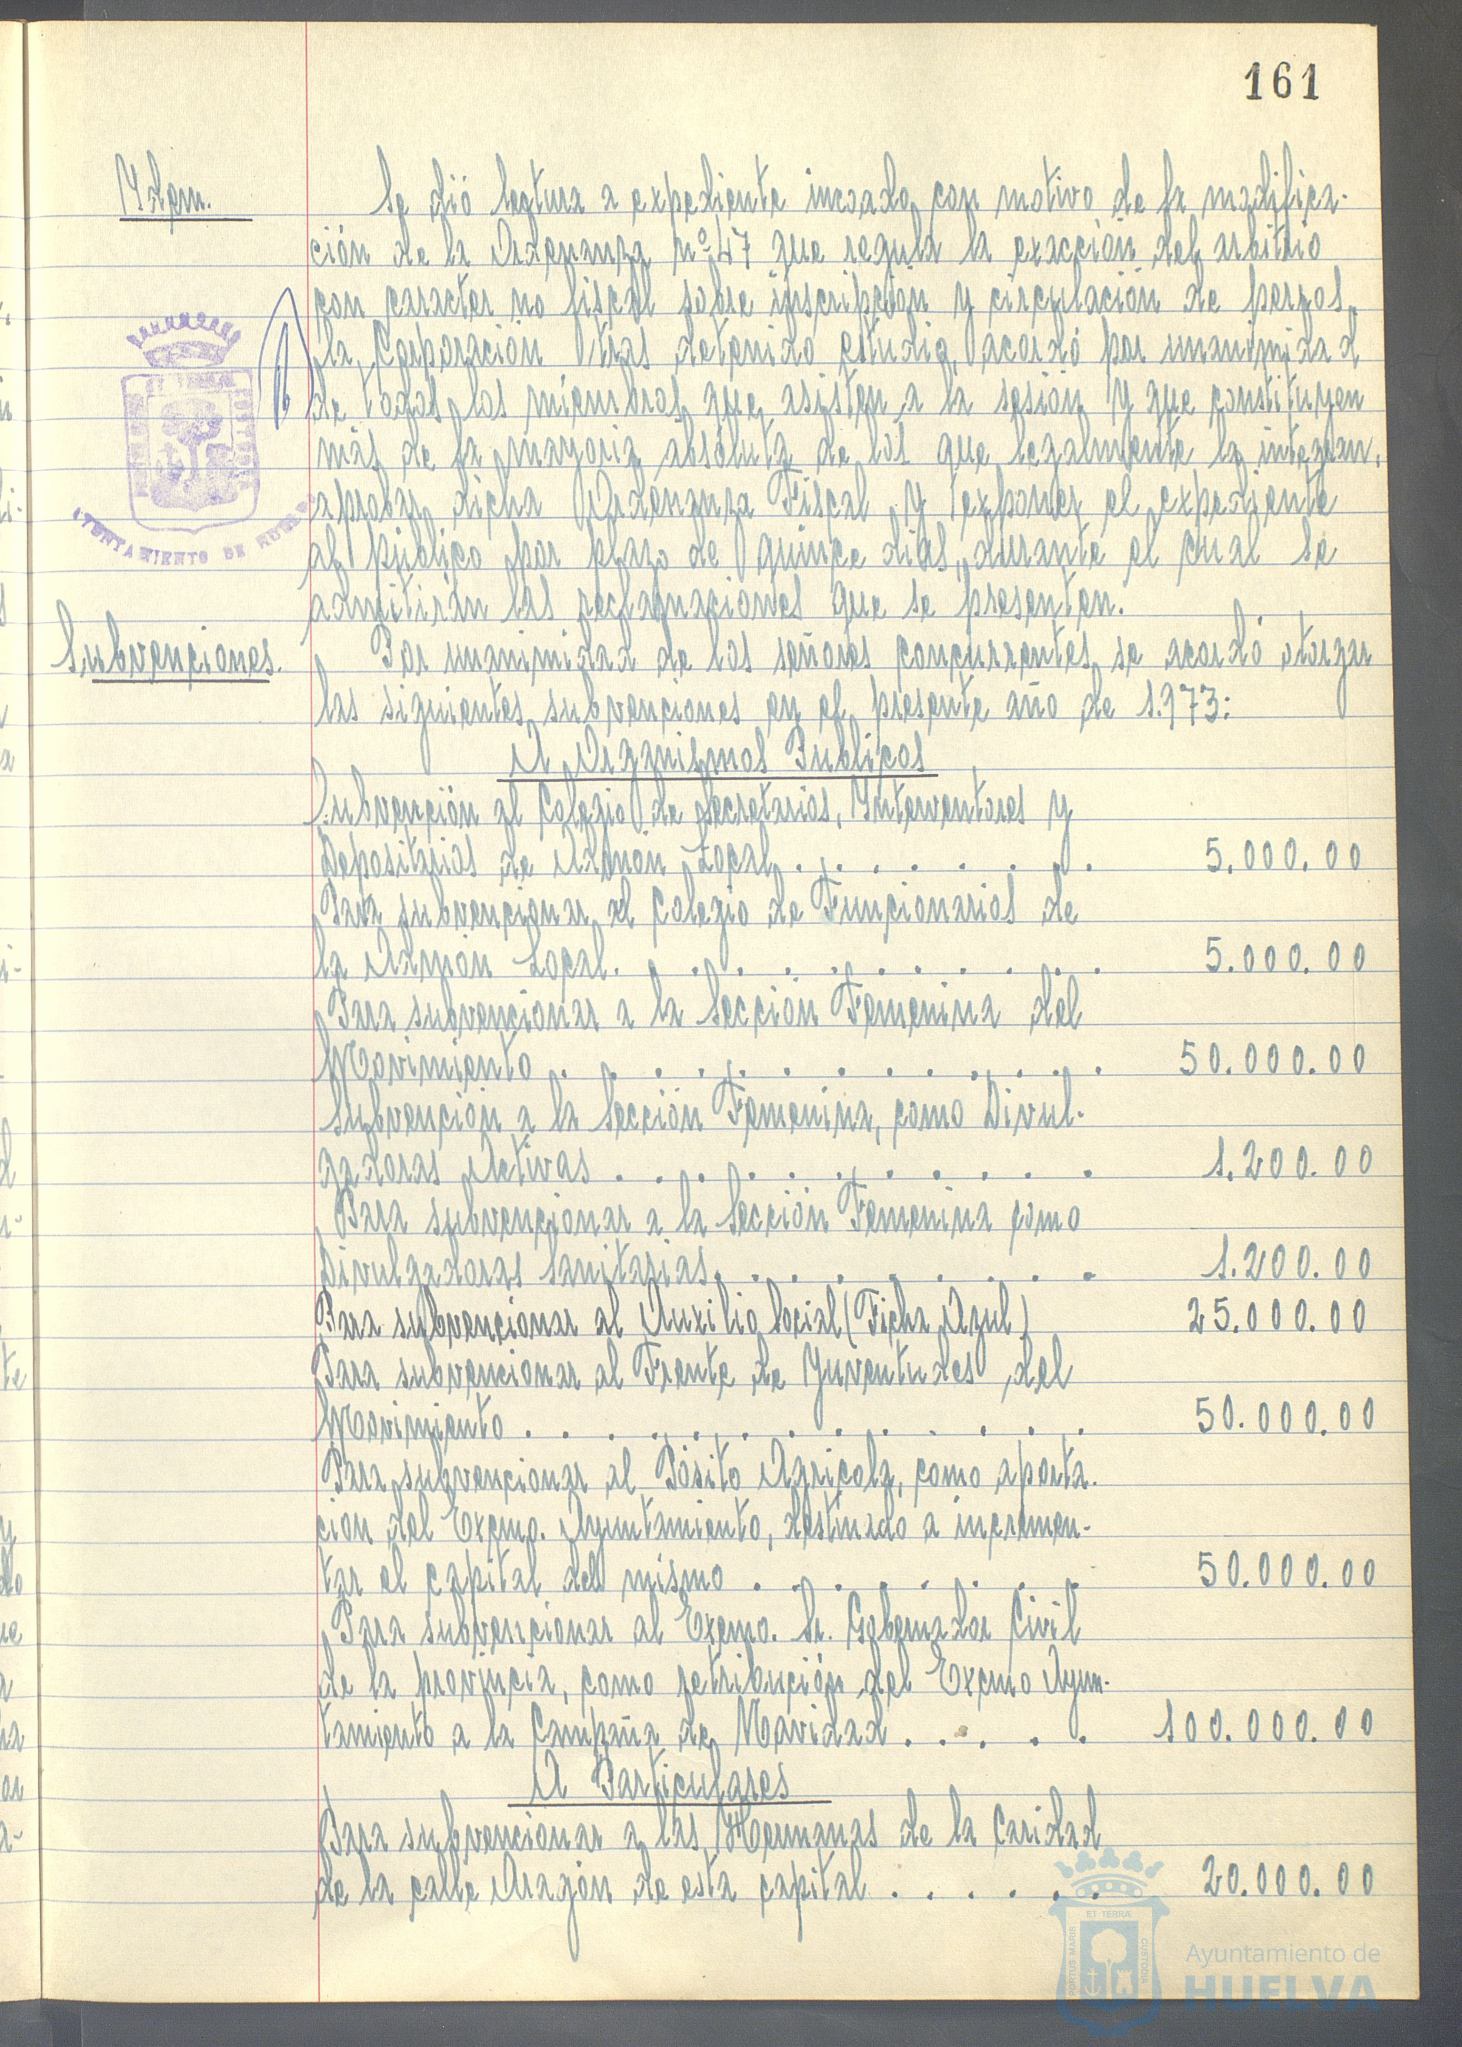 161
Ydem.
Se dió lectura a expediente incoado con motivo de la modifica-
ción de la Ordenanza nº 47 que regula la exacción del arbitrio
con caracter no fiscal sobre inscripción y circulación de perros,
la Corporación tras detenido estudio, acordó por unanimidad
de todos los miembros que asisten a la sesión y que constituyen
más de la mayoria absoluta de los que legalmente la integran,
aprobar dicha Ordenanza Fiscal y exponer el expediente
al público por plazo de quince dias, durante el cual se
admitirán las reclamaciones que se presenten.
AYUNTAMIENTO DE HUELVA
Subvenciones.
Por unanimidad de los señores concurrentes se acordó otorgar
las siguientes subvenciones en el presente año de 1.973:
A Organismos Publicos
Subvención al Colegio de Secretarios, Ynterventores y
Depositarios de Admon Local . . . . . . . 5.000.00
Para subvencionar al Colegio de Funcionarios de
la Admón Local . . . . . . . . . . 5.000.00
Para subvencionar a la Sección Femenina del
Movimiento . . . . . . . . . . . . 50.000.00
Subvención a la Sección Femenina, como Divul-
gadoras Activas . . . . . . . . . . 1.200.00
Para subvencionar a la Sección Femenina como
Divulgadoras Sanitarias . . . . . . . . . 1.200.00
Para subvencionar al Auxilio Social (Ficha Azul) 25.000.00
Para subvencionar al Frente de Yuventudes del
Movimiento . . . . . . . . . . . . 50.000.00
Para subvencionar al Pósito Agricola, como aporta-
cion del Excmo. Ayuntamiento, destinado a incremen-
tar el capital del mismo . . . . . . . . 50.000.00
Para subvencionar al Excmo. Sr. Gobernador Civil
de la provincia, como retribución del Excmo Ayun-
tamiento a la Campaña de Navidad . . . . . 100.000.00
A Particulares
Para subvencionar a las Hermanas de la Caridad
de la calle Aragón de esta capital . . . . . . 20.000.00
PORTUS MARIS ET TERRAE CUSTODIA
Ayuntamiento de
HUELVA